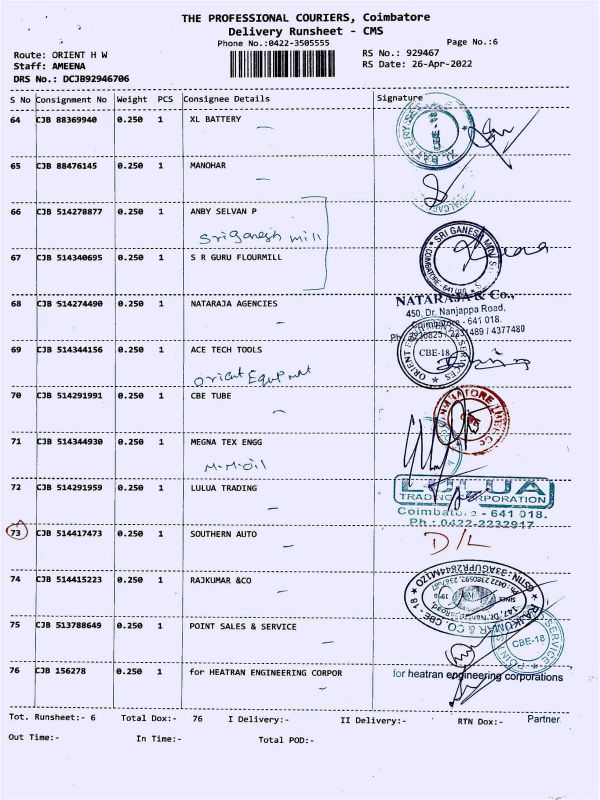 THE PROFESSIONAL COURIERS, Coimbatore
Delivery Runsheet - CMS
Phone No.:0422-3505555
Page No.:6
Route: ORIENT H W
RS No.: 929467
Staff: AMEENA
RS Date: 26-Apr-2022
DRS No.: DCJB92946706
S No Consignment No Weight PCS Consignee Details Signature
64 CJB 88369940 0.250 1 XL BATTERY
65 CJB 88476145 0.250 1 MANOHAR
66 CJB 514278877 0.250 1 ANBY SELVAN P
Sri Ganesh mill
SRI GANESH
COIMBATORE - 641 018
67 CJB 514340695 0.250 1 S R GURU FLOURMILL
68 CJB 514274490 0.250 1 NATARAJA AGENCIES
NATARAJA & Co.,
450, Dr. Nanjappa Road,
Coimbatore - 641 018.
/ 4377480
69 CJB 514344156 0.250 1 ACE TECH TOOLS
CBE-18
Orient Equipment
70 CJB 514291991 0.250 1 CBE TUBE
71 CJB 514344930 0.250 1 MEGNA TEX ENGG
M.M.Oil
72 CJB 514291959 0.250 1 LULUA TRADING
LULUA
TRADING CORPORATION
Coimbatore - 641 018.
Ph : 0422-2232917
73 CJB 514417473 0.250 1 SOUTHERN AUTO
D/L
74 CJB 514415223 0.250 1 RAJKUMAR &CO
RAJKUMAR & CO. CBE - 18
75 CJB 513788649 0.250 1 POINT SALES & SERVICE
CBE-18
76 CJB 156278 0.250 1 for HEATRAN ENGINEERING CORPOR
for heatran engineering corporations
Partner
Tot. Runsheet:- 6 Total Dox:- 76 I Delivery:- II Delivery:- RTN Dox:-
Out Time:- In Time:- Total POD:-